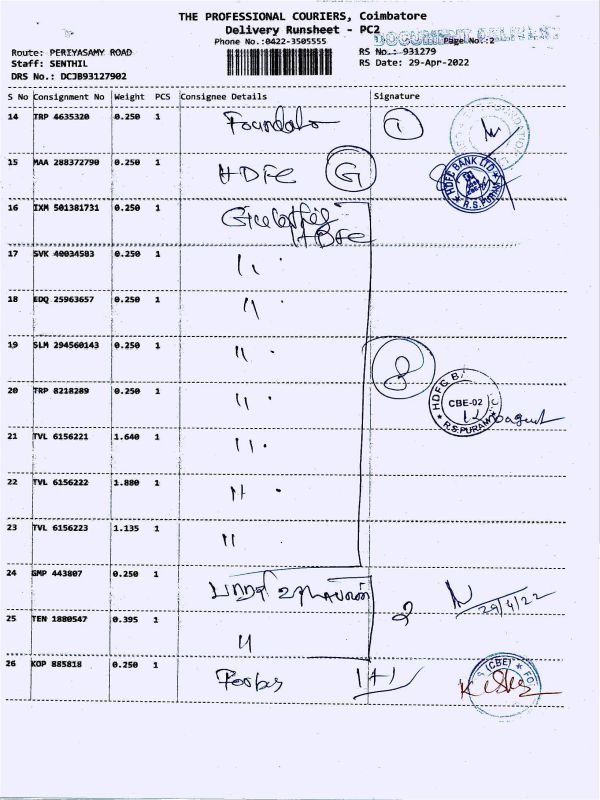 THE PROFESSIONAL COURIERS, Coimbatore
Delivery Runsheet - PC2
Phone No.:0422-3505555
Page No.:2
Route: PERIYASAMY ROAD
RS No.: 931279
Staff: SENTHIL
RS Date: 29-Apr-2022
DRS No.: DCJB93127902
S No Consignment No Weight PCS Consignee Details Signature
14 TRP 4635320 0.250 1 1
15 MAA 288372790 0.250 1 HDFC G
HDFC BANK LTD
R.S.PURAM
16 IXM 501381731 0.250 1
HDFC
17 SVK 40034583 0.250 1 "
18 EDQ 25963657 0.250 1 "
19 SLM 294560143 0.250 1 " 8
20 TRP 8218289 0.250 1 "
HDFC BA
CBE-02
R.S.PURAM
21 TVL 6156221 1.640 1 "
22 TVL 6156222 1.880 1 "
23 TVL 6156223 1.135 1 "
24 GMP 443807 0.250 1
29/4/22
25 TEN 1880547 0.395 1 " 2
26 KOP 885818 0.250 1 Forbes 1+1
(CBE) * FO